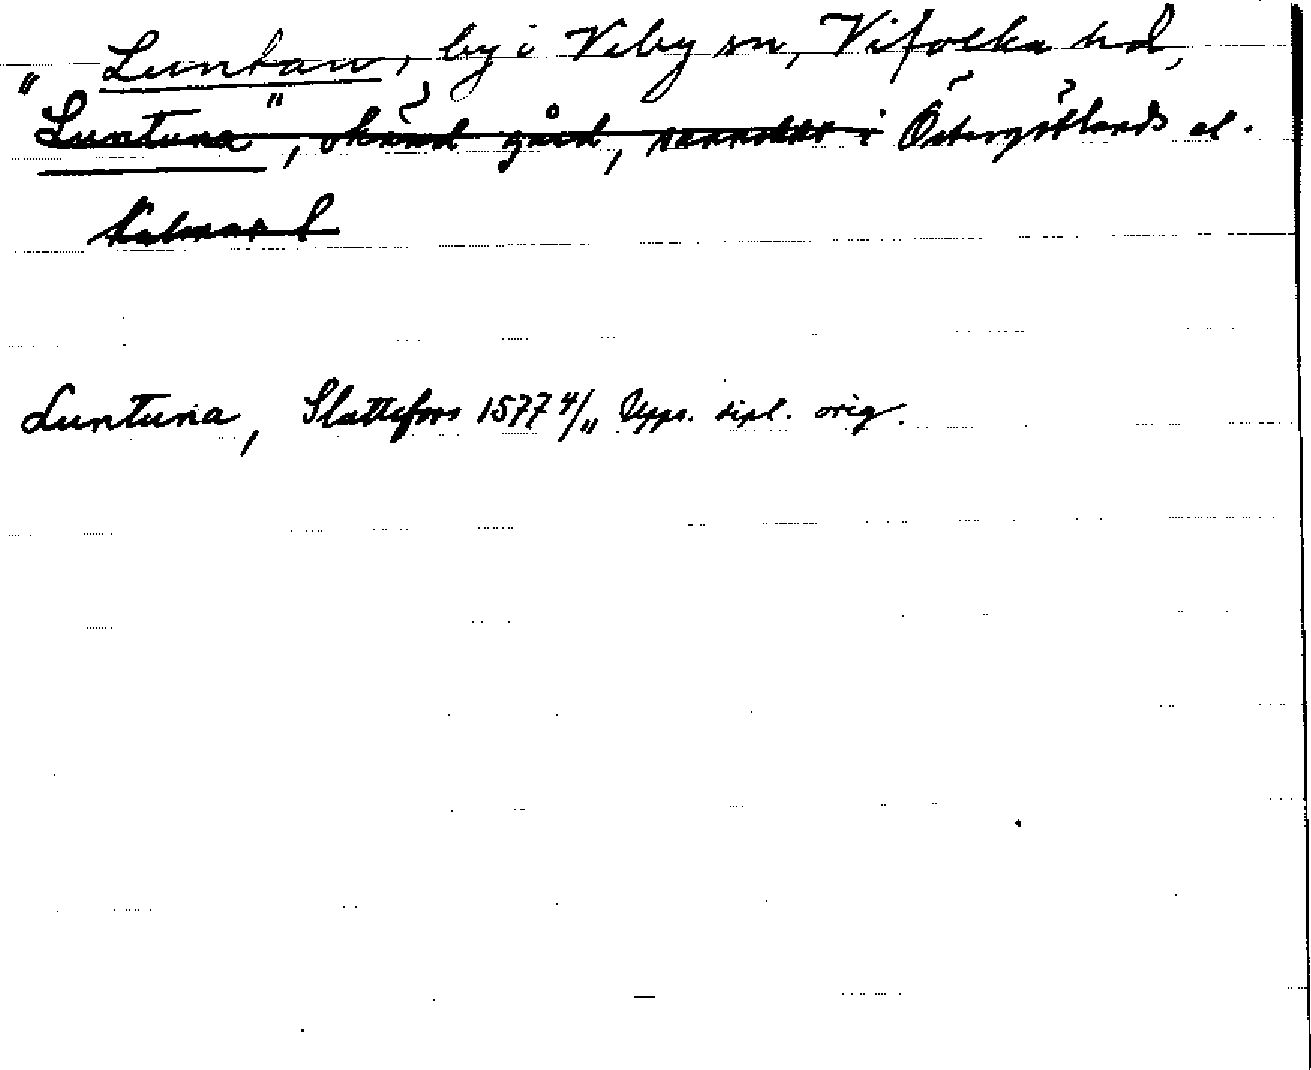 Luntan, by i Veby sn, Vifolka hd,
"Luntuna", okänd gård, sannolikt i Östergötlands el.
Kalmar l
Luntuna, Slattefors 1577 4/11 Upps. dipl. orig.